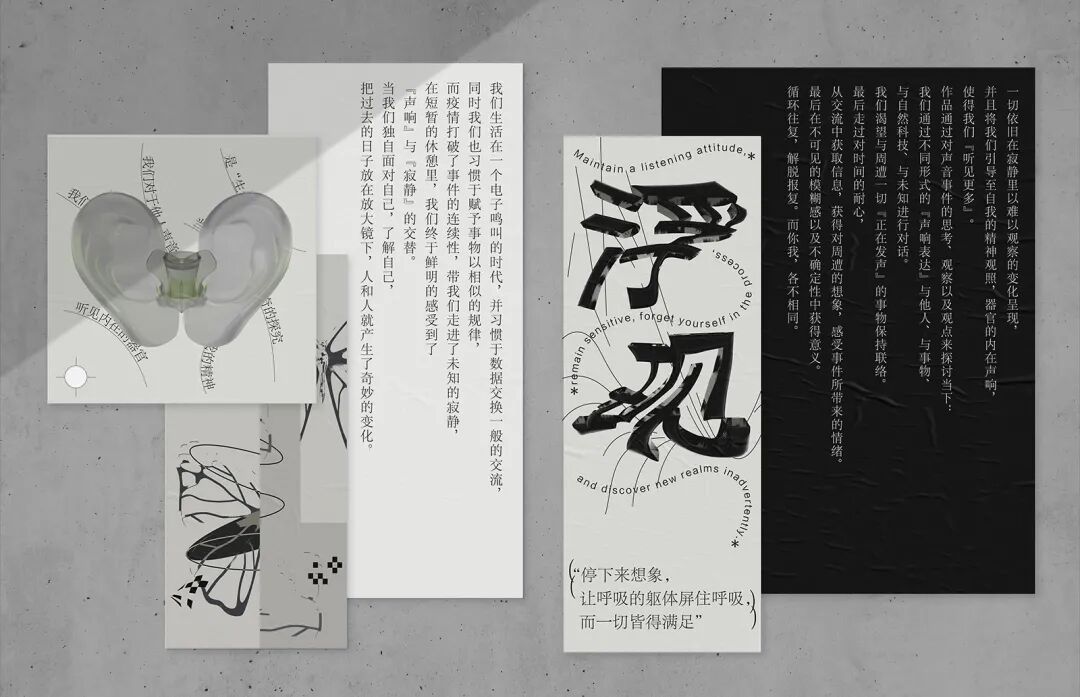 我们
我们对于他人声音
是“生
听见内在的器官
的探究
的精神
我们生活在一个电子鸣叫的时代，并习惯于数据交换一般的交流，
同时我们也习惯于赋予事物以相似的规律，
而疫情打破了事件的连续性，带我们走进了未知的寂静，
在短暂的休憩里，我们终于鲜明的感受到了
『声响』与『寂静』的交替。
当我们独自面对自己，了解自己，
把过去的日子放在放大镜下，人和人就产生了奇妙的变化。
Maintain a listening attitude,*
浮现
process
in the
*remain sensitive, forget yourself
and discover new realms inadvertently.*
“停下来想象，
让呼吸的躯体屏住呼吸，
而一切皆得满足”
一切依旧在寂静里以难以观察的变化呈现，
并且将我们引导至自我的精神观照，器官的内在声响，
使得我们『听见更多』。
作品通过对声音事件的思考、观察以及观点来探讨当下：
我们通过不同形式的『声响表达』与他人、与事物、
与自然科技、与未知进行对话。
我们渴望与周遭一切『正在发声』的事物保持联络。
最后走过对时间的耐心，
从交流中获取信息，获得对周遭的想象，感受事件所带来的情绪。
最后在不可见的模糊感以及不确定性中获得意义。
循环往复，解脱报复。而你我，各不相同。